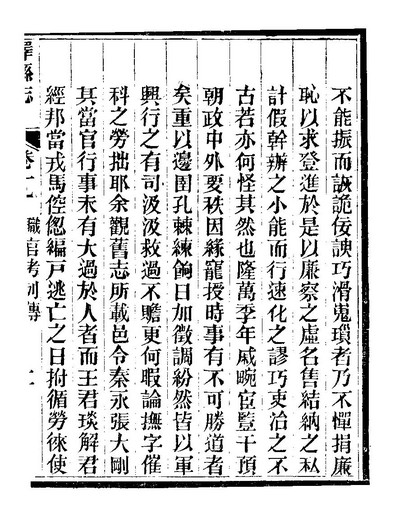 不能振而詼詭佞諛巧滑鬼瑣者乃不憚捐廉
恥以求登進於是以廉察之虛名售結納之私
計假幹辦之小能而行速化之謬巧吏治之不
古若亦何怪其然也隆萬季年戚畹宦豎干預
朝政中外要秩因緣寵授時事有不可勝道者
矣重以邊圉孔棘練餉日加徵調紛然皆以軍
興行之有司汲汲救過不贍更何暇論撫字催
科之勞拙耶余觀舊志所載邑令秦永張大剛
其當官行事未有大過於人者而王君琰解君
經邦當戎馬倥傯編戶逃亡之日拊循勞徠使
縣志 卷十九 職官考列傳 二